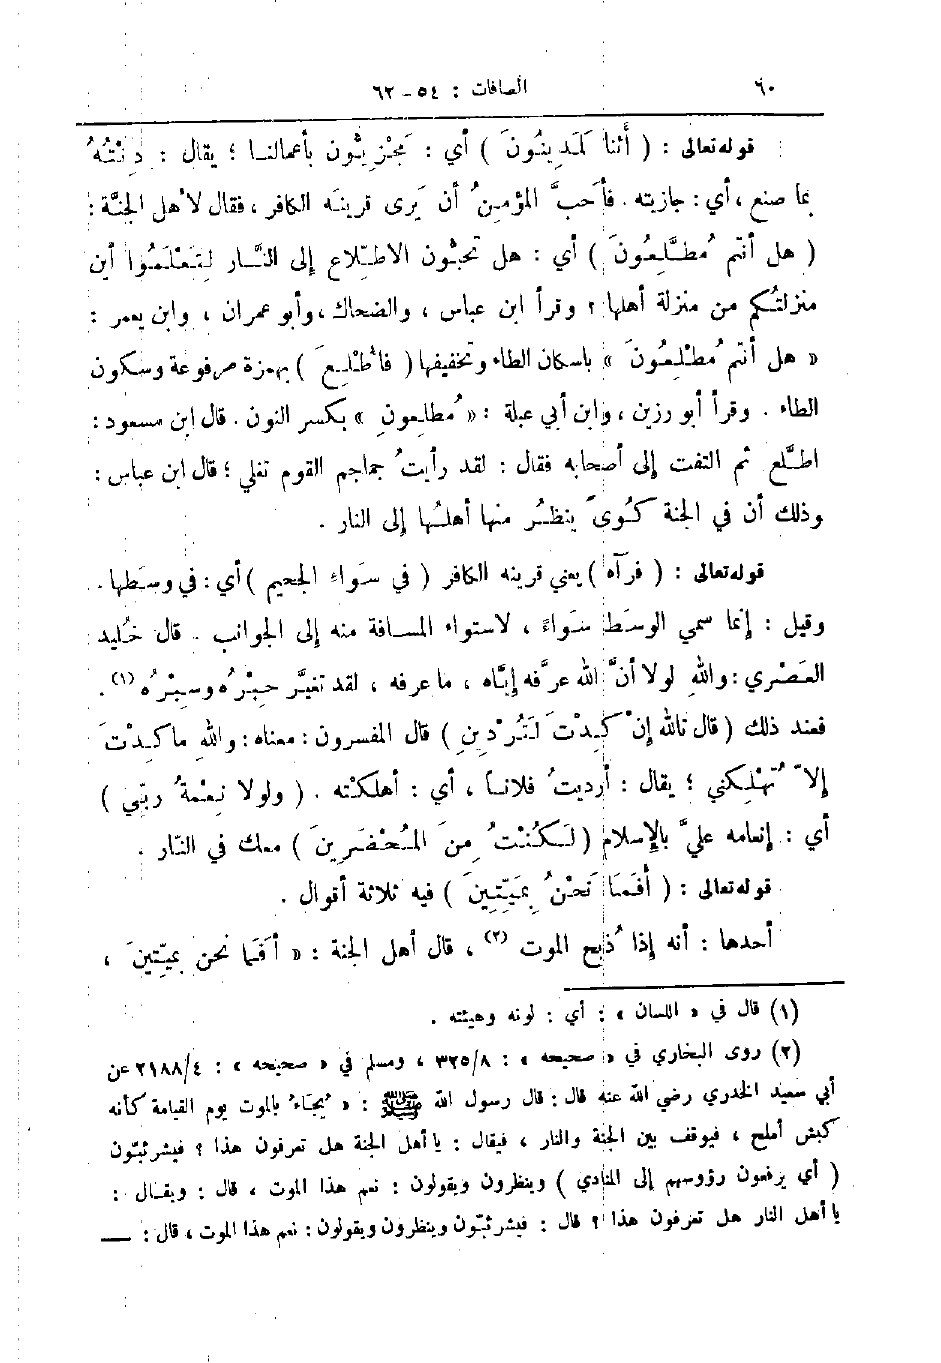 ٦٠
الصافات : ٥٤ - ٦٢
قوله تعالى : ( أَئنا لَمَدِينُونَ ) أي : مَجْزِيّون بأعمالنا ؛ يقال : دِنْتُهُ
بما صنع ، أي : جازيته . فأَحبَّ المؤمنُ أن يَرى قرينَه الكافر ، فقال لأهل الجنَّة :
( هل أنتم مُطَّلِعُونَ ) أي : هل تحبّون الاطِّلاع إلى النَّار لِتَعْلَمُوا أين
منزلتُكم من منزلة أهلها ؟ وقرأ ابن عباس ، والضحاك ، وأبو عمران ، وابن يعمر :
« هل أنتم مُطْلِعُونَ » باسكان الطاء وتخفيفها ( فأُطْلِعَ ) بهمزة مرفوعة وسكون
الطاء . وقرأ أبو رزين ، وابن أبي عبلة : « مُطلِعونِ » بكسر النون . قال ابن مسعود :
اطَّلع ثم التفت إلى أصحابه فقال : لقد رأيتُ جماجم القوم تغلي ؛ قال ابن عباس :
وذلك أن في الجنة كُوىً ينظُر منها أهلُها إلى النار .
قوله تعالى : ( فرآه ) يعني قرينه الكافر ( في سَواءِ الجحيم ) أي : في وسَطها .
وقيل : إنما سمي الوسَط سَواءً ، لاستواء المسافة منه إلى الجوانب . قال خُليد
العَصْري : واللهِ لولا أنَّ الله عرَّفه إيَّاه ، ما عرفه ، لقد تغيَّر حِبْرُه وسِبْرُه (١) .
فعند ذلك ( قال تالله إنْ كِدْتَ لَتُرْدِينِ ) قال المفسرون : معناه : واللهِ ما كِدْتَ
إلاّ تُهْلِكني ؛ يقال : أرديتُ فلاناً ، أي : أهلكْته . ( ولولا نِعْمةُ ربِّي )
أي : إنعامه عليَّ بالإسلام ( لَكُنْتُ مِنَ المُحْضَرِينَ ) معك في النّار .
قوله تعالى : ( أَفَمَا نَحْنُ بِمَيِّتِينَ ) فيه ثلاثة أقوال .
أحدها : أنه إذا ذُبح الموت (٢) ، قال أهل الجنة : « أفَمَا نحن بميّتينَ ،
(١) قال في « اللسان » : أي : لونه وهيئته .
(٢) روى البخاري في « صحيحه » : ٣٢٥/٨ ، ومسلم في « صحيحه » : ٢١٨٨/٤ عن
أبي سعيد الخدري رضي الله عنه قال : قال رسول الله ﷺ : « يُجاءُ بالموت يوم القيامة كأنه
كبش أملح ، فيوقف بين الجنة والنار ، فيقال : يا أهل الجنة هل تعرفون هذا ؟ فيشرئبّون
( أي يرفعون رؤوسهم إلى المنادي ) وينظرون ويقولون : نعم هذا الموت ، قال : ويقال :
يا أهل النار هل تعرفون هذا ؟ قال : فيشرئبّون وينظرون ويقولون : نعم هذا الموت ، قال :